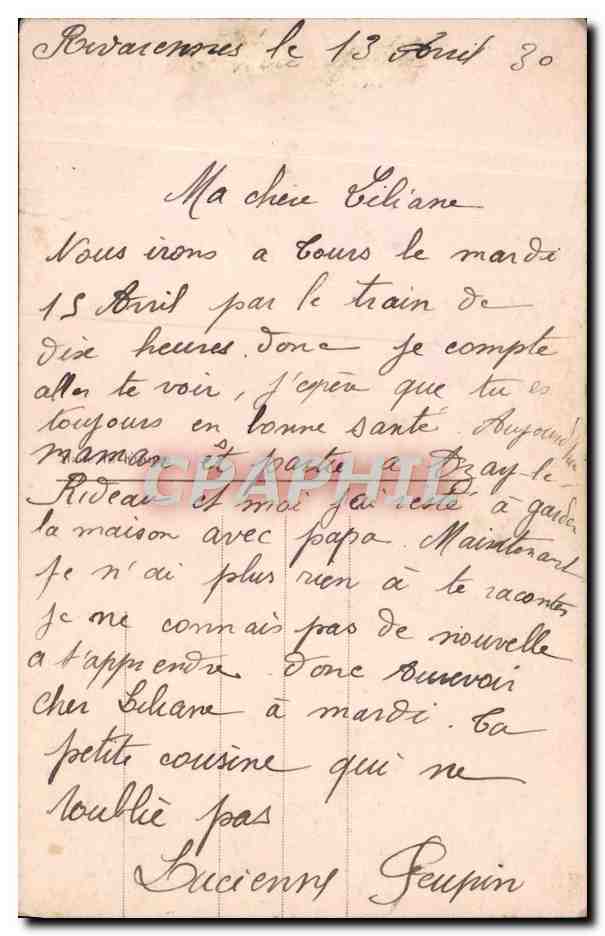 Rivarennes le 13 Avril 30
Ma chère Liliane
Nous irons a Tours le mardi
15 Avril par le train de
dix heures. donc je compte
aller te voir, j'epère que tu es
toujours en bonne santé. Aujourd'hui
maman êt partie a Azay-le-
Rideau et moi j'ai resté à garder
la maison avec papa. Maintenant
je n'ai plus rien à te raconter
je ne connais pas de nouvelle
a t'apprendre. donc Aurevoir
cher Liliane à mardi. Ta
petite cousine qui ne
toublie pas
Lucienne Peupin
CPAPHIL